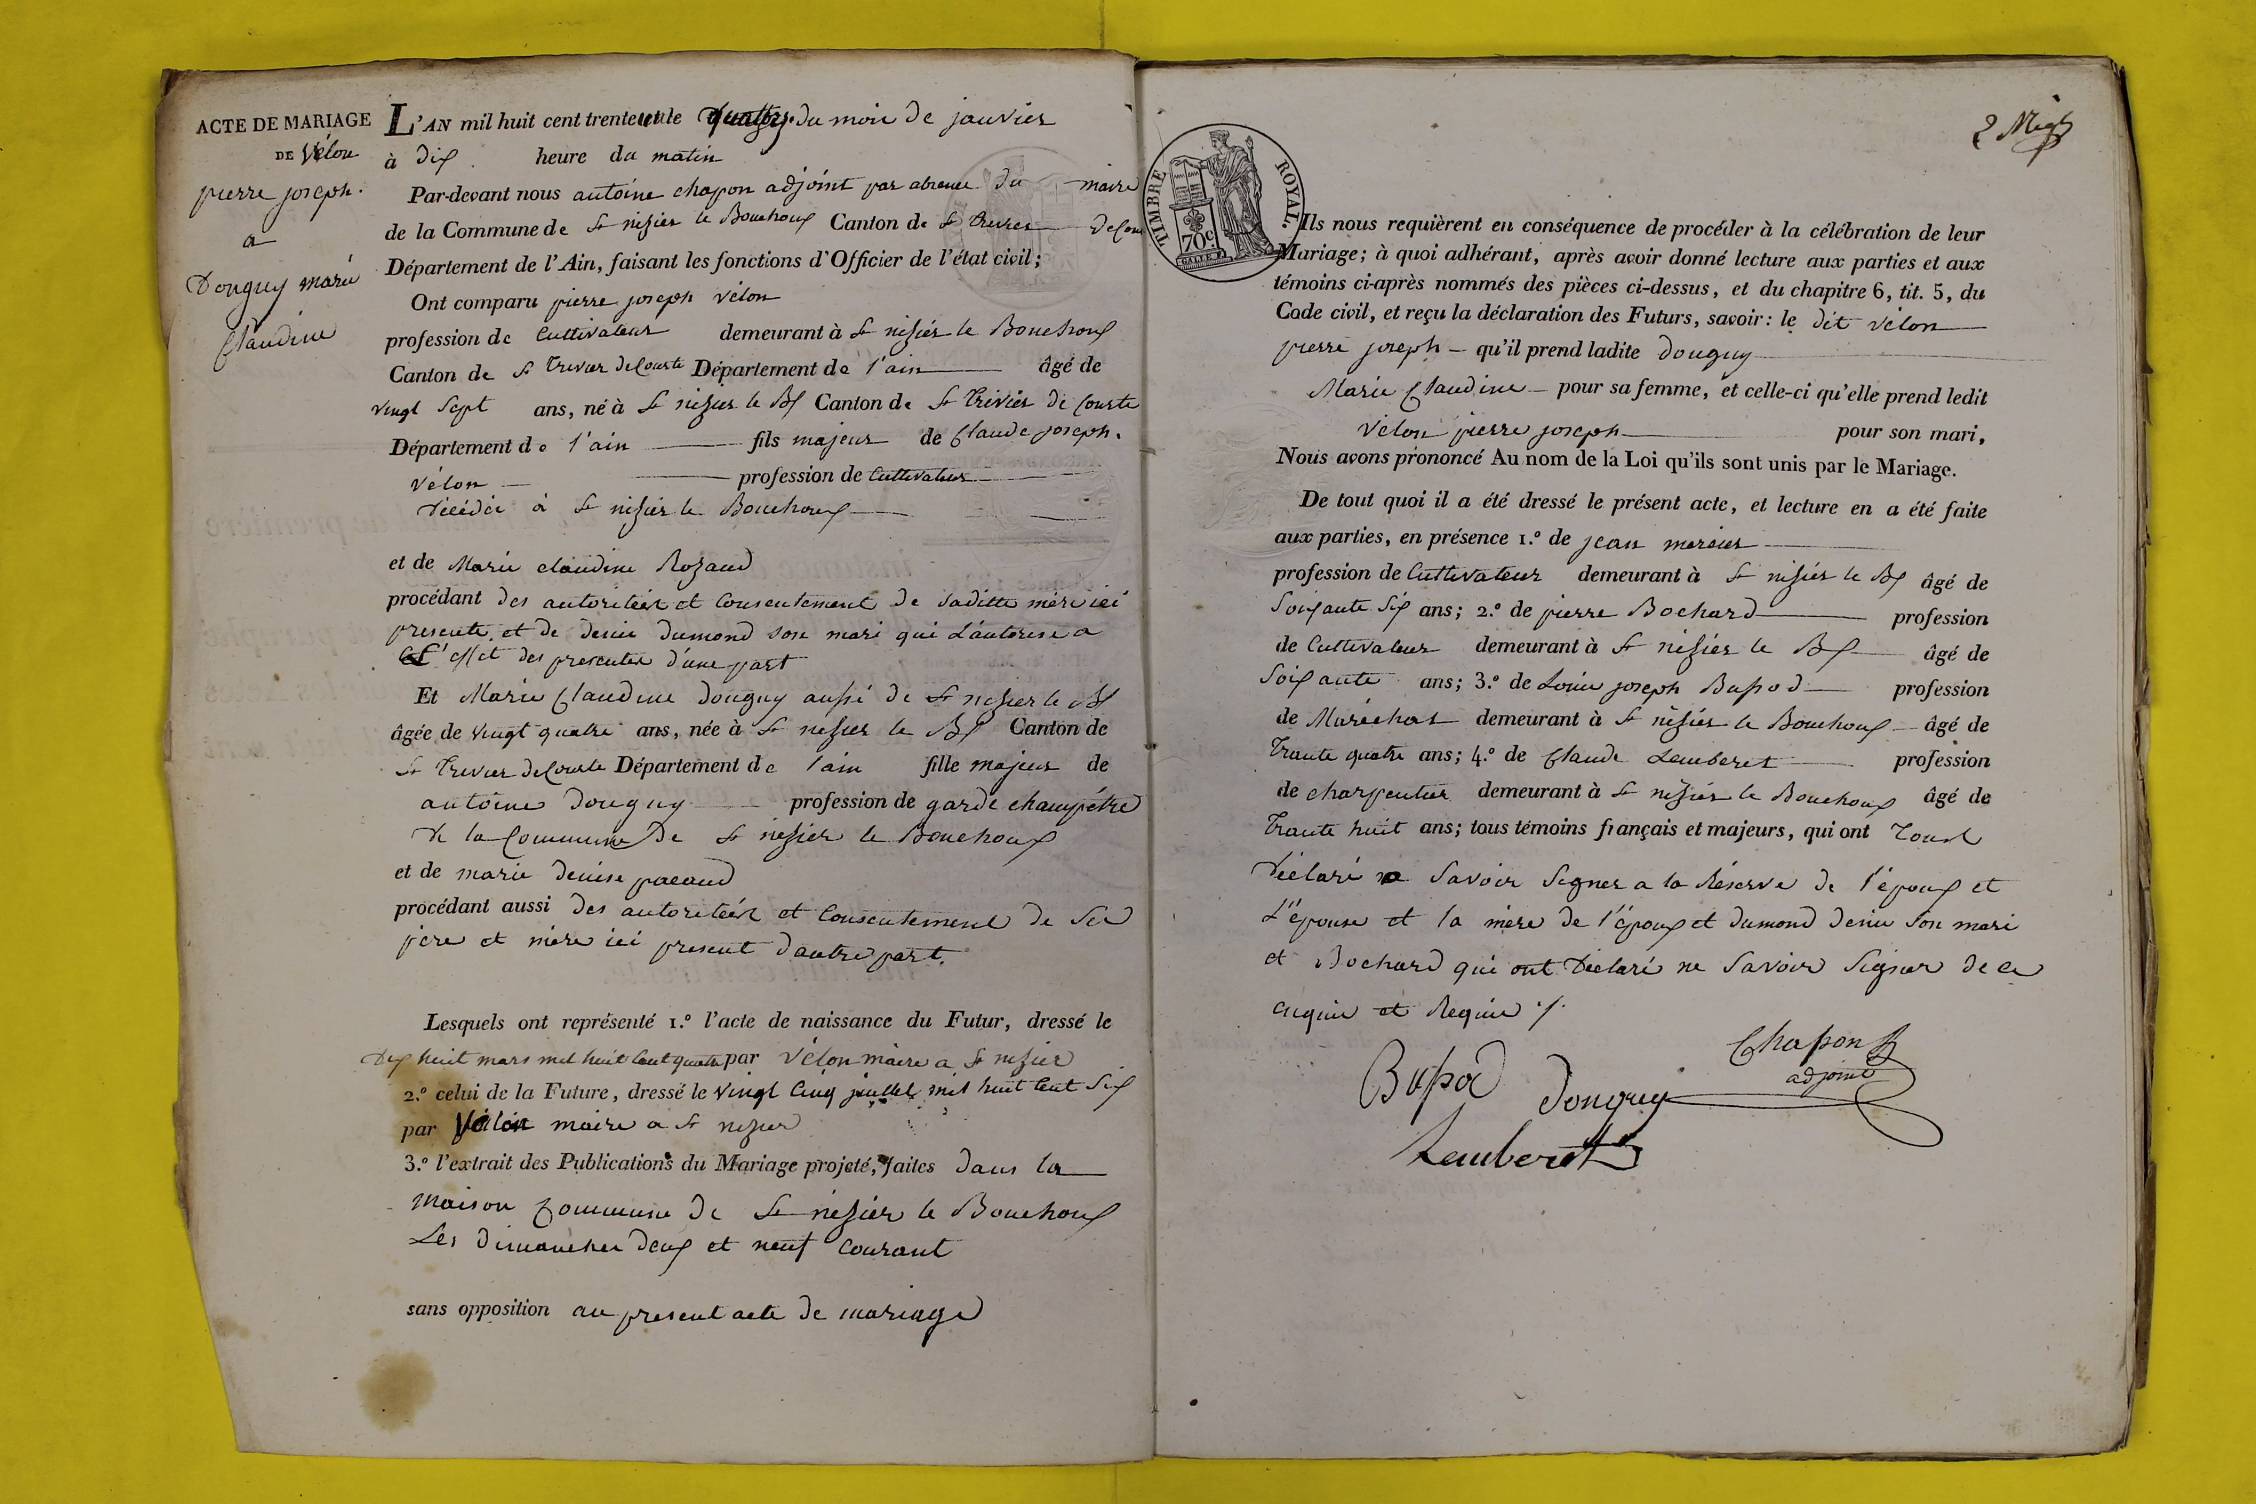 ACTE DE MARIAGE
DE Vélon
pierre joseph.
a
Donguy marie
Claudine
L'AN mil huit cent trente et un le du mois de janvier
à dix heure du matin
Par-devant nous antoine chapon adjoint par absence du maire
de la Commune de St nizier le Bouchoux Canton de St trivier de Cour
Département de l'Ain, faisant les fonctions d'Officier de l'état civil;
Ont comparu pierre joseph vélon
profession de Cultivateur demeurant à St nizier le Bouchoux
Canton de St trivier de Courte Département de l'ain âgé de
vingt Sept ans, né à St nizier le Bx Canton de St trivier de Courte
Département de l'ain fils majeur de Claude joseph.
vélon profession de Cultivateur
décédé à St nizier le Bouchoux
et de Marie claudine Rozand
procédant des autoritéer et Consentement de Saditte mère ici
presente et de denis dumond son mari qui L'autorise a
L'effet des presentes d'une part
Et Marie Claudine donguy aussi de St nizier le Bx
âgée de vingt quatre ans, née à St nizier le Bx Canton de
St trivier de Courte Département de l'ain fille majeur de
antoine donguy profession de garde champêtre
de la Commune de St nizier le Bouchoux
et de marie denise pacaud
procédant aussi des autoritéer et Consentement de Ses
père et mère ici present d'autre part.
Lesquels ont représenté 1.º l'acte de naissance du Futur, dressé le
dix huit mars mil huit Cent quatre par Vélon maire a St nizier
2.º celui de la Future, dressé le vingt Cinq juillet mil huit Cent Six
par Vélon maire a St nizier
3.º l'extrait des Publications du Mariage projeté, faites dans la
maison Commune de St nizier le Bouchoux
Les dimanches deux et neuf Courant
sans opposition au present acte de mariage
2
TIMBRE ROYAL.
70c
Ils nous requièrent en conséquence de procéder à la célébration de leur
Mariage; à quoi adhérant, après avoir donné lecture aux parties et aux
témoins ci-après nommés des pièces ci-dessus, et du chapitre 6, tit. 5, du
Code civil, et reçu la déclaration des Futurs, savoir: le dit vélon
pierre joseph qu'il prend ladite donguy
Marie Claudine pour sa femme, et celle-ci qu'elle prend ledit
vélon pierre joseph pour son mari,
Nous avons prononcé Au nom de la Loi qu'ils sont unis par le Mariage.
De tout quoi il a été dressé le présent acte, et lecture en a été faite
aux parties, en présence 1.º de jean mercier
profession de Cultivateur demeurant à St nizier le Bx âgé de
Soixante Six ans; 2.º de pierre Bochard profession
de Cultivateur demeurant à St nizier le Bx âgé de
Soixante ans; 3.º de Louis joseph Bupod profession
de Maréchal demeurant à St nizier le Bouchoux âgé de
Trante quatre ans; 4.º de Claude Lemberet profession
de charpentier demeurant à St nizier le Bouchoux âgé de
Trante huit ans; tous témoins français et majeurs, qui ont
déclaré Savoir Signer a la Réserve de l'époux et
L'épouse et la mère de l'époux et dumond denis Son mari
et Bochard qui ont déclaré ne Savoir Signer de ce
enquis et Requis ./.
Bupod donguy Chapon
adjoint
Lemberet